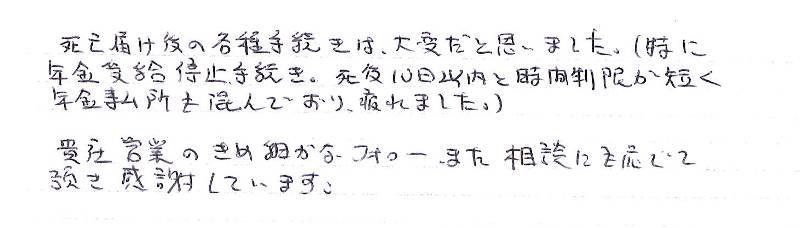 死亡届け後の各種手続きは、大変だと思いました。(特に
年金受給停止手続き。死後10日以内と時間制限が短く
年金事ム所も混んでおり、疲れました。)
貴社営業のきめ細かなフォロー、また相談にも応じて
頂き感謝しています。